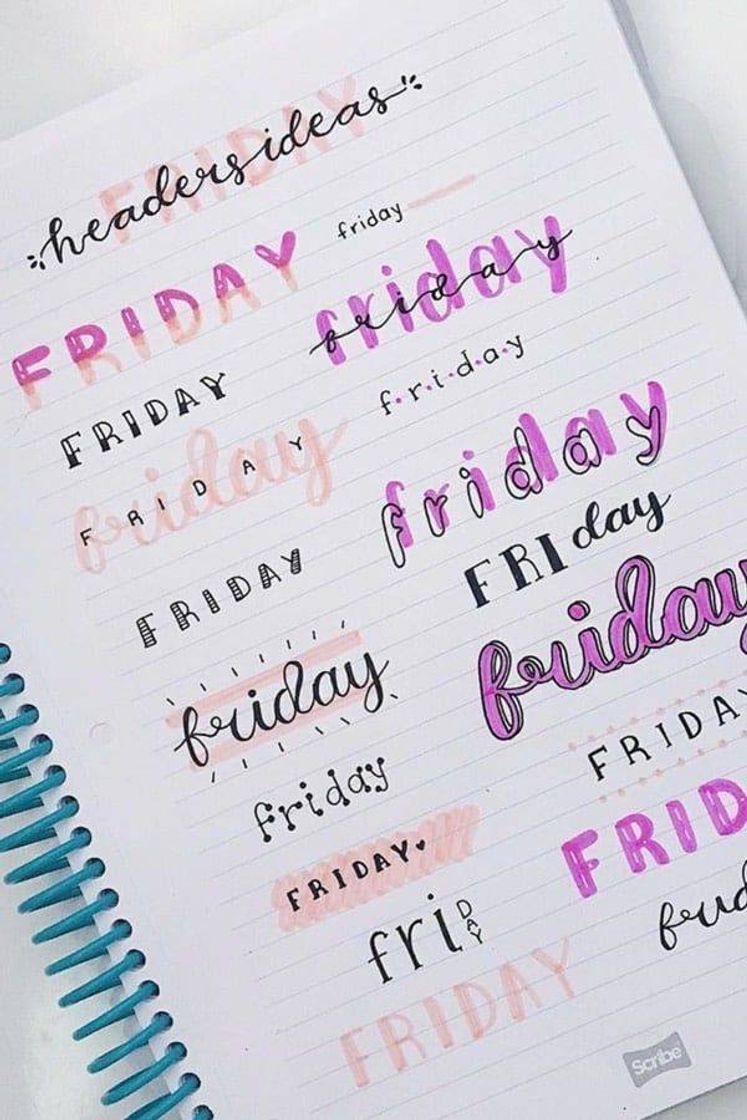 FRIDAY
headers ideas
friday
FRIDAY
friday
friday
FRIDAY
f.r.i.d.a.y
friday
FRIDAY
friday
FRIDAY
FRIday
friday
friday
friday
FRIDAY
FRIDAY♥
FRID
friDAY
frid
FRIDAY
Scribe